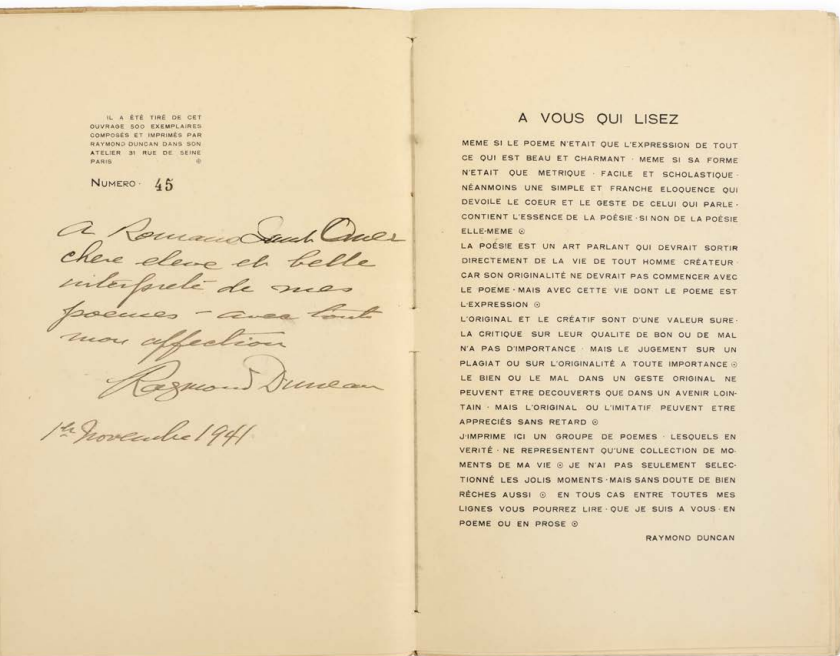 IL A ÉTÉ TIRÉ DE CET
OUVRAGE 500 EXEMPLAIRES
COMPOSÉS ET IMPRIMÉS PAR
RAYMOND DUNCAN DANS SON
ATELIER 31 RUE DE SEINE
PARIS ⊙
NUMERO · 45
A Romano
chere eleve et belle
interprete de mes
poemes - avec tout
mon affection
Raymond Duncan
1er Novembre 1941
A VOUS QUI LISEZ
MEME SI LE POEME N'ETAIT QUE L'EXPRESSION DE TOUT
CE QUI EST BEAU ET CHARMANT · MEME SI SA FORME
N'ETAIT QUE METRIQUE · FACILE ET SCHOLASTIQUE ·
NÉANMOINS UNE SIMPLE ET FRANCHE ELOQUENCE QUI
DEVOILE LE COEUR ET LE GESTE DE CELUI QUI PARLE ·
CONTIENT L'ESSENCE DE LA POÉSIE · SI NON DE LA POÉSIE
ELLE-MEME ⊙
LA POÉSIE EST UN ART PARLANT QUI DEVRAIT SORTIR
DIRECTEMENT DE LA VIE DE TOUT HOMME CRÉATEUR ·
CAR SON ORIGINALITÉ NE DEVRAIT PAS COMMENCER AVEC
LE POEME · MAIS AVEC CETTE VIE DONT LE POEME EST
L'EXPRESSION ⊙
L'ORIGINAL ET LE CRÉATIF SONT D'UNE VALEUR SURE ·
LA CRITIQUE SUR LEUR QUALITE DE BON OU DE MAL
N'A PAS D'IMPORTANCE · MAIS LE JUGEMENT SUR UN
PLAGIAT OU SUR L'ORIGINALITÉ A TOUTE IMPORTANCE ⊙
LE BIEN OU LE MAL DANS UN GESTE ORIGINAL NE
PEUVENT ETRE DECOUVERTS QUE DANS UN AVENIR LOIN-
TAIN · MAIS L'ORIGINAL OU L'IMITATIF PEUVENT ETRE
APPRECIÉS SANS RETARD ⊙
J'IMPRIME ICI UN GROUPE DE POEMES · LESQUELS EN
VERITÉ · NE REPRESENTENT QU'UNE COLLECTION DE MO-
MENTS DE MA VIE ⊙ JE N'AI PAS SEULEMENT SELEC-
TIONNÉ LES JOLIS MOMENTS · MAIS SANS DOUTE DE BIEN
RÊCHES AUSSI ⊙ EN TOUS CAS ENTRE TOUTES MES
LIGNES VOUS POURREZ LIRE · QUE JE SUIS A VOUS · EN
POEME OU EN PROSE ⊙
RAYMOND DUNCAN